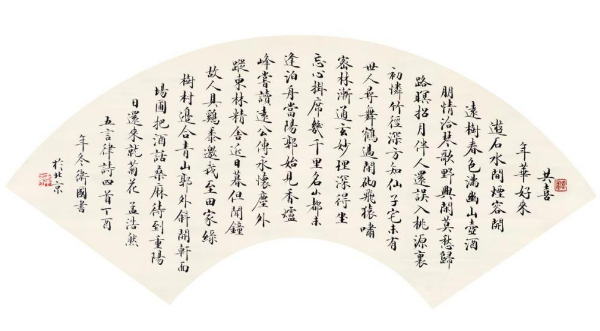 共喜
年華好来
遊石水間煙容開
遠樹春色滿幽山壺酒
朋情洽琴歌野興閑莫愁歸
路暝招月伴人還誤入桃源裏
初憐竹徑深方知仙子宅未有
世人尋舞鶴過閑砌飛猿嘯
密林漸通玄妙理深得坐
忘心掛席幾千里名山都未
逢泊舟當陽郭始見香爐
峰嘗讀遠公傳永懷塵外
蹤東林精舍近日暮但聞鐘
故人具雞黍邀我至田家綠
樹村邊合青山郭外斜開軒面
場圃把酒話桑麻待到重陽
日還來就菊花 孟浩然
五言律詩四首丁酉
年冬衛國書
於北京